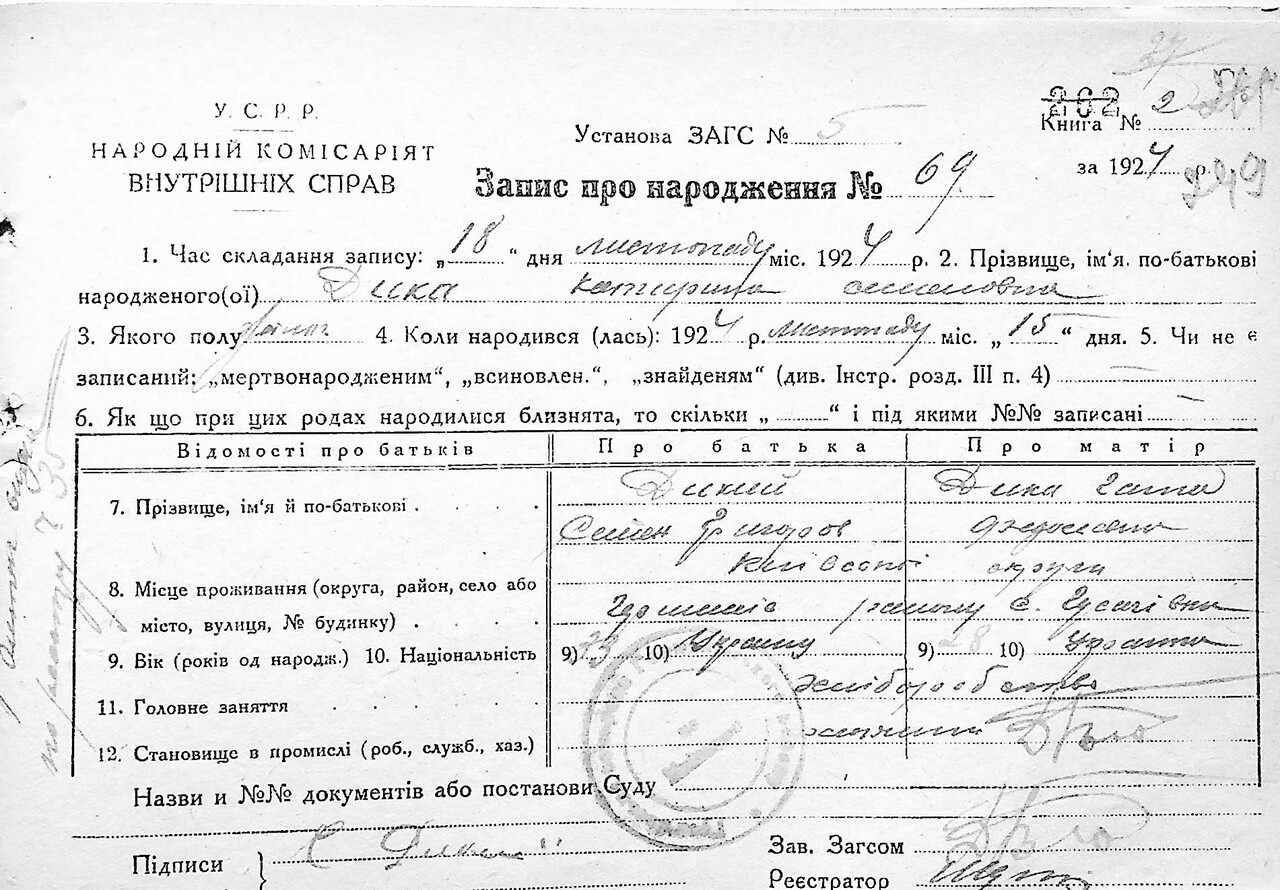 У. С. Р. Р.
НАРОДНІЙ КОМІСАРІЯТ
ВНУТРІШНІХ СПРАВ
202
Книга № 2
249
за 1924 р.
Установа ЗАГС № 5
Запис про народження № 69
1. Час складання запису: „18“ дня листопаду міс. 1924 р. 2. Прізвище, ім'я. по-батькові
народженого(ої) Дика Катерина Семеновна
3. Якого полу 4. Коли народився (лась): 1924 р. листопаду міс. „15“ дня. 5. Чи не є
записаний: „мертвонародженим“, „всиновлен.“, „знайденям“ (див. Інстр. розд. III п. 4)
6. Як що при цих родах народилися близнята, то скільки „ “ і під якими №№ записані
Відомості про батьків Про батька Про матір
7. Прізвище, ім'я й по-батькові . Дикий Дика
Семен Григоров
8. Місце проживання (округа, район, село або Київської округи
місто, вулиця, № будинку) . району с.
9. Вік (років од народж.) 10. Національність 9) 10) Украинц 9) 28 10) Украинка
11. Головне заняття хлiборобство
12. Становище в промислі (роб., служб., хаз.)
Назви и №№ документів або постанови Суду
Підписи С Дикий
Зав. Загсом
Реєстратор